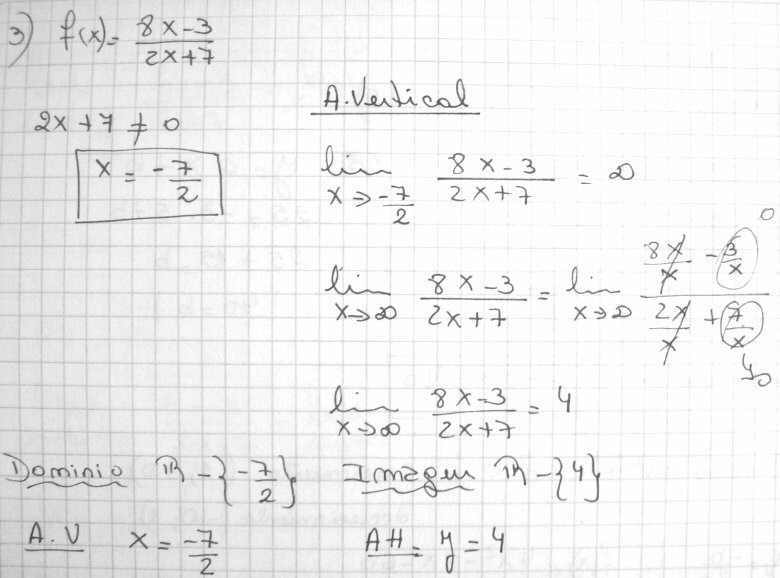 3) f(x) = (8x-3)/(2x+7)
A. Vertical
2x + 7 ≠ 0
x = -7/2
lim x→-7/2 (8x-3)/(2x+7) = ∞
lim x→∞ (8x-3)/(2x+7) = lim x→∞ (8x/x - 3/x)/(2x/x + 7/x) 0 0
lim x→∞ (8x-3)/(2x+7) = 4
Dominio ℝ - {-7/2} Imagen ℝ - {4}
A.V x = -7/2 AH = y = 4